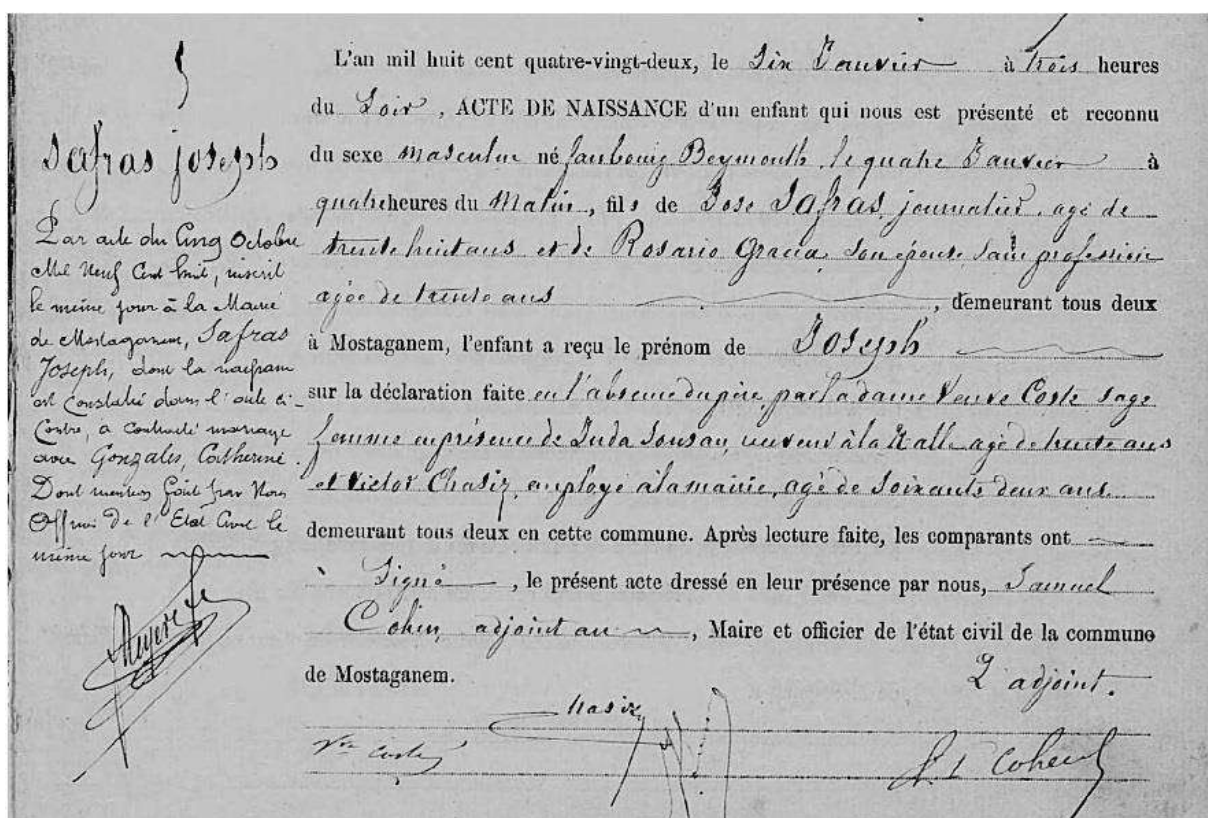 5
Safras joseph
Par acte du Cinq Octobre
Mil Neuf Cent huit, inscrit
le même jour à la Mairie
de Mostaganem, Safras
Joseph, dont la naissance
est constatée dans l'acte ci-
Contre, a contracté mariage
avec Gonzales, Catherine.
Dont mention faite par Nous
Officier De l'Etat Civil le
même jour
L'an mil huit cent quatre-vingt-deux, le Six Janvier à trois heures
du Soir, ACTE DE NAISSANCE d'un enfant qui nous est présenté et reconnu
du sexe masculin né faubourg Beymouth, le quatre Janvier à
quatre heures du Matin, fils de José Safras, journalier, agé de
trente huit ans et de Rosario Gracia, son épouse, sans profession
agée de trente ans, demeurant tous deux
à Mostaganem, l'enfant a reçu le prénom de Joseph
sur la déclaration faite en l'absence du père, par la dame Veuve Coste sage
femme en présence de Juda à la Halle agé de trente ans
et Victor Chasiz, employé à la mairie, agé de soixante deux ans
demeurant tous deux en cette commune. Après lecture faite, les comparants ont
Signé, le présent acte dressé en leur présence par nous, Samuel
Cohen, adjoint au, Maire et officier de l'état civil de la commune
de Mostaganem.
L'adjoint.
Chasiz
Vve Coste
Cohen